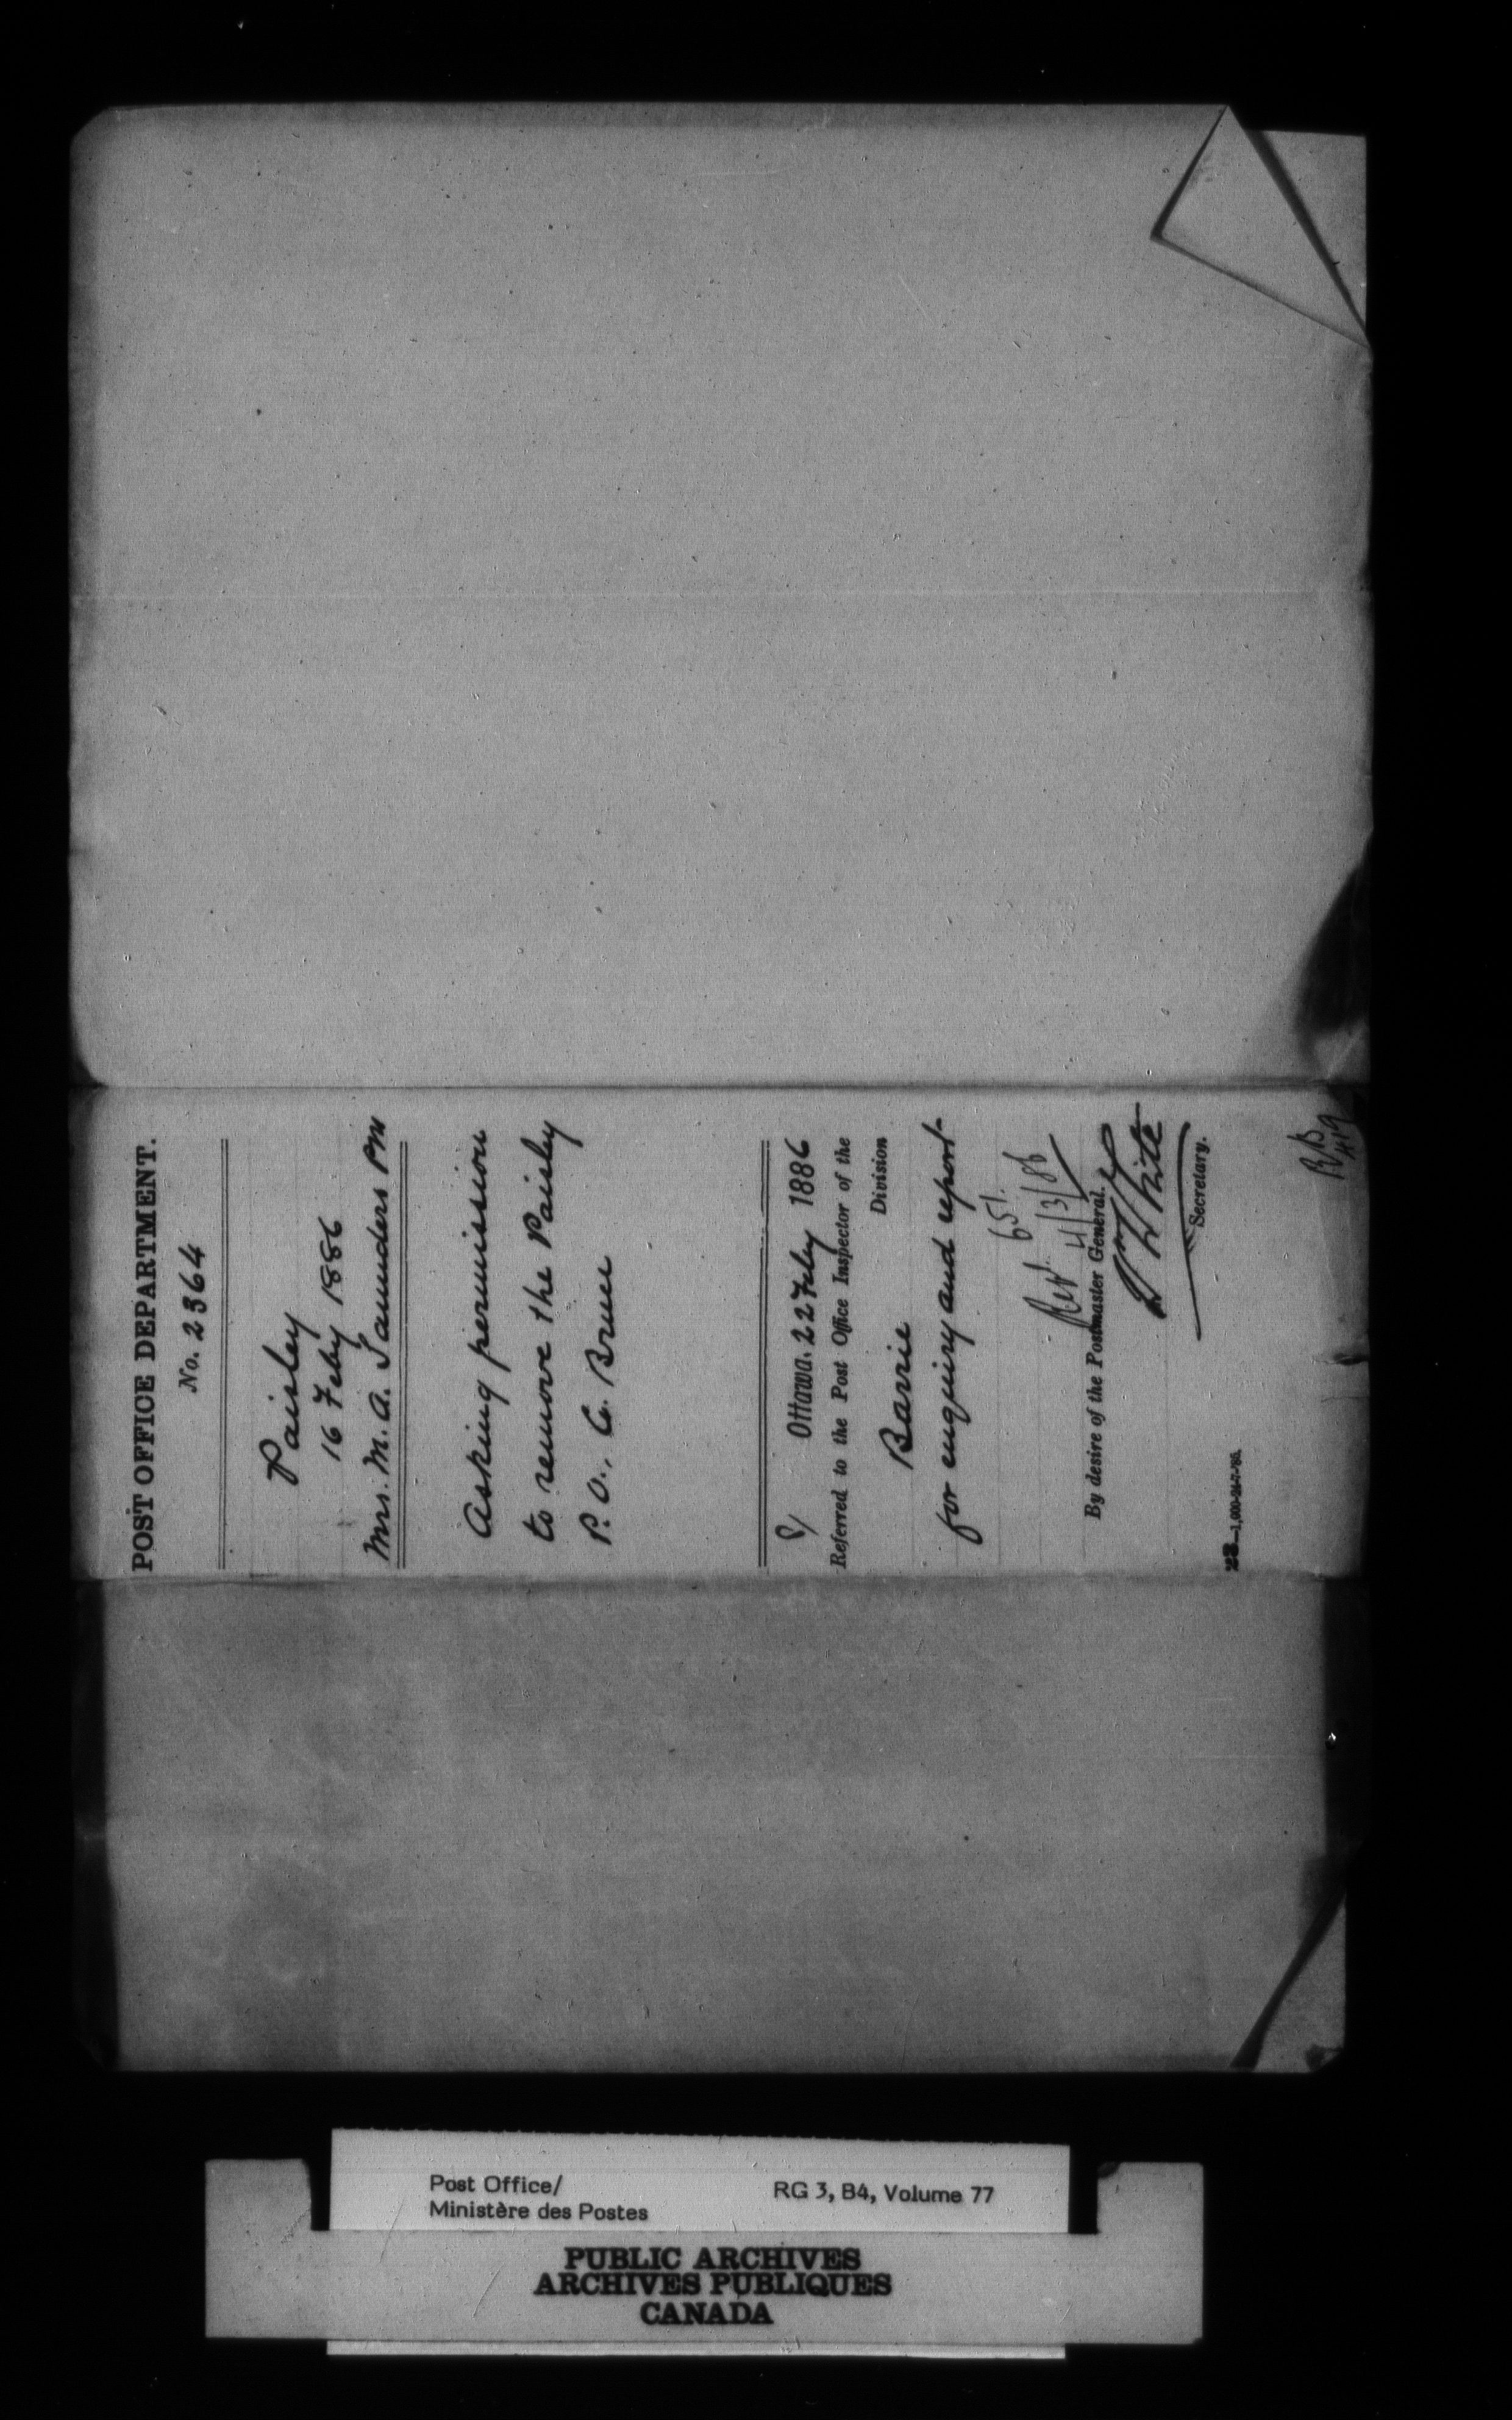 POST OFFICE DEPARTMENT.
No. 2364
Paisley
16 Feby 1886
Mrs. M. A. Saunders PM
Asking permission
to remove the Paisley
P.O., Co. Bruce
Ottawa, 22 Feby 1886
Referred to the Post Office Inspector of the
Barrie Division
for enquiry and report
651.
Repd. 4/3/86
By desire of the Postmaster General.
Wm White
Secretary.
23—1,000-24-7-'85.
Post Office/
Ministère des Postes
RG 3, B4, Volume 77
PUBLIC ARCHIVES
ARCHIVES PUBLIQUES
CANADA